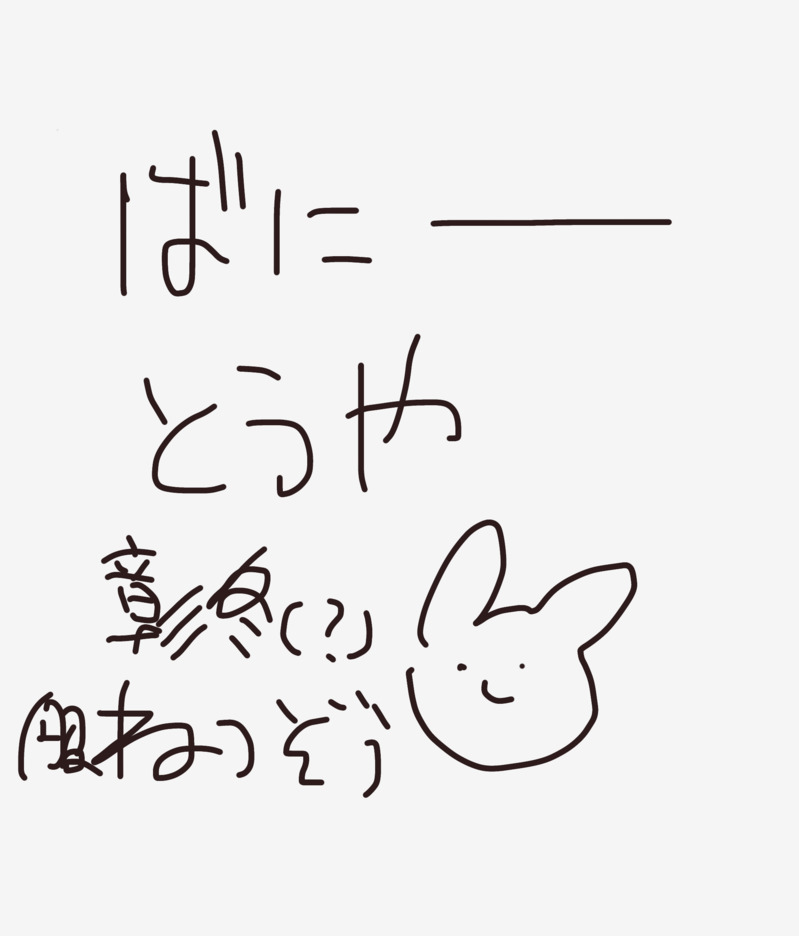 ばにー
とうや
彰冬(?)
服ねつぞう